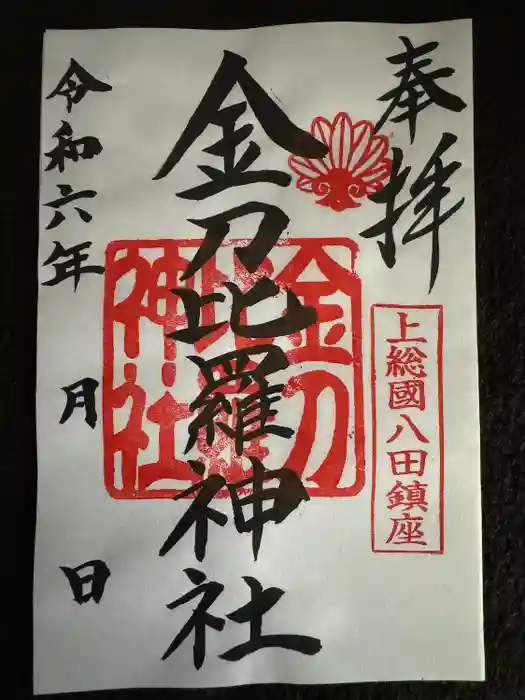 奉拝
上総國八田鎮座
金刀比羅神社
金刀比羅神社
令和六年 月 日